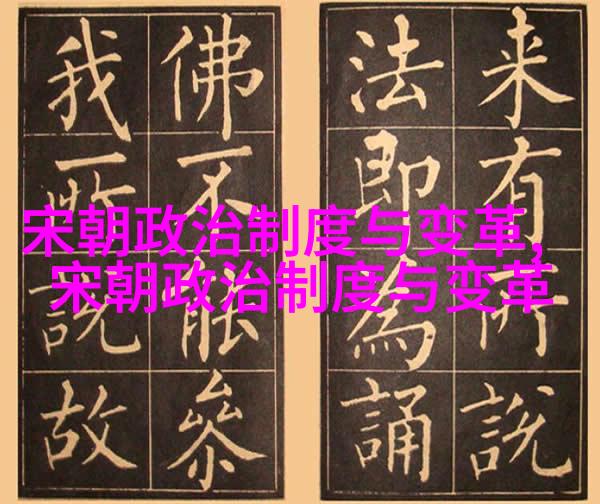 来有所說
法即為誦
佛不能叅
我所說故
宋朝政治制度与变革,
宋朝政治制度与变革